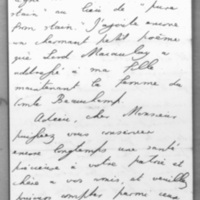 slain" au lieu de "pure
from stain." J'ajoute encore
un charmant petit poëme
que Lord Macaulay a
adressé à ma fille
maintenant la femme du
comte Beauchamp.
Adieu, cher Monsieur
puissiez vous conserver
encore longtemps une santé
précieuse à votre patrie et
chère à vos amis, et veuillez
toujours compter parmi ceux